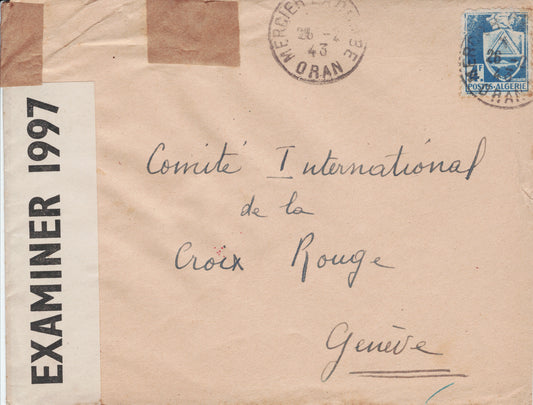 MERCIER-LACOMBE
26 -4
43
ORAN
F
POSTES-ALGERIE
26
4 43
ORAN
EXAMINER 1997
Comité International
de la
Croix Rouge
Genève